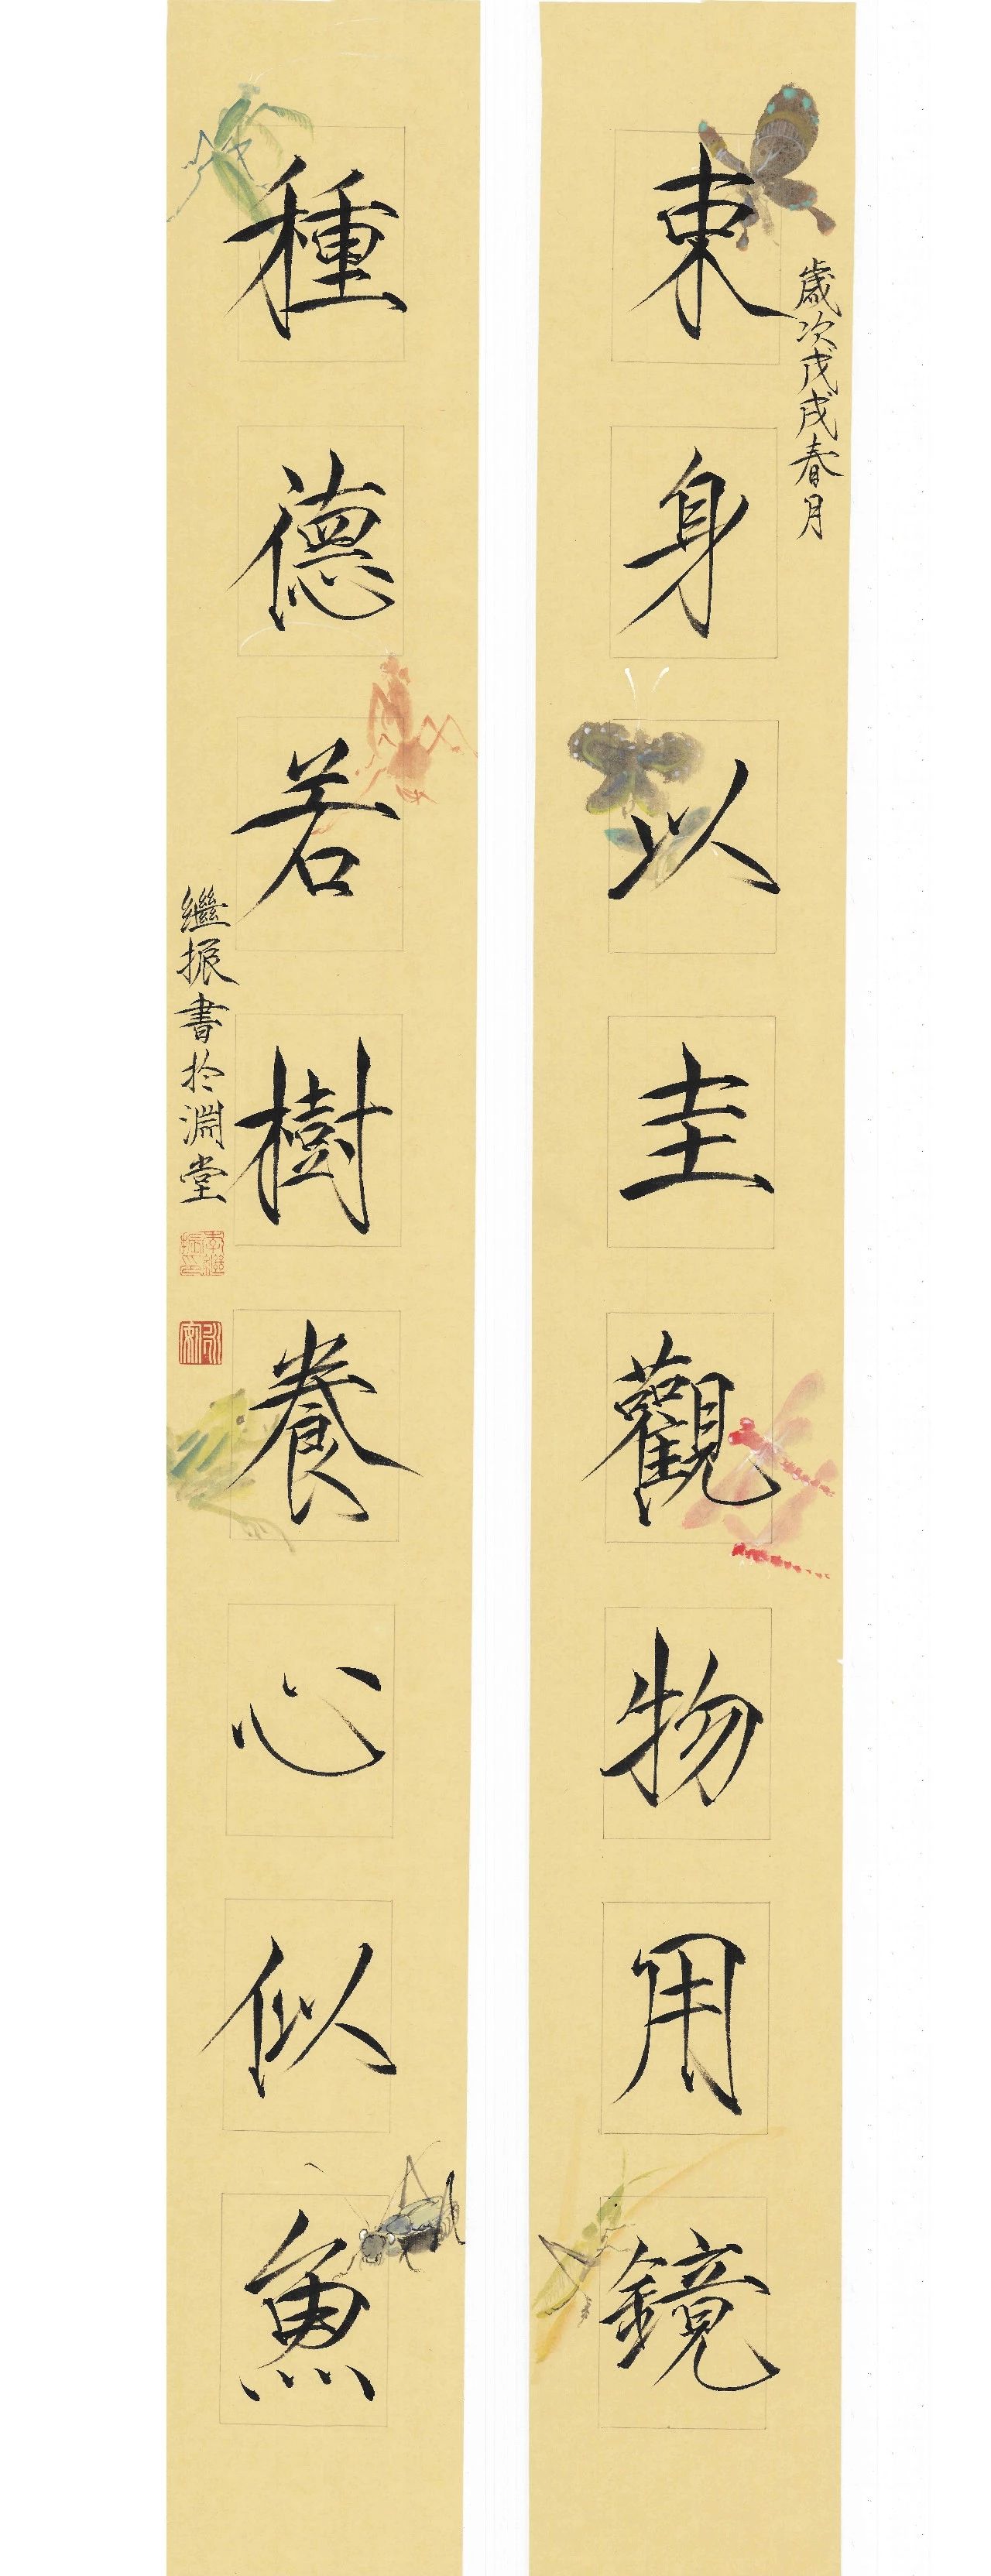 歲次戊戌春月
束身以圭觀物用鏡
種德若樹養心似魚
繼振書於淵堂